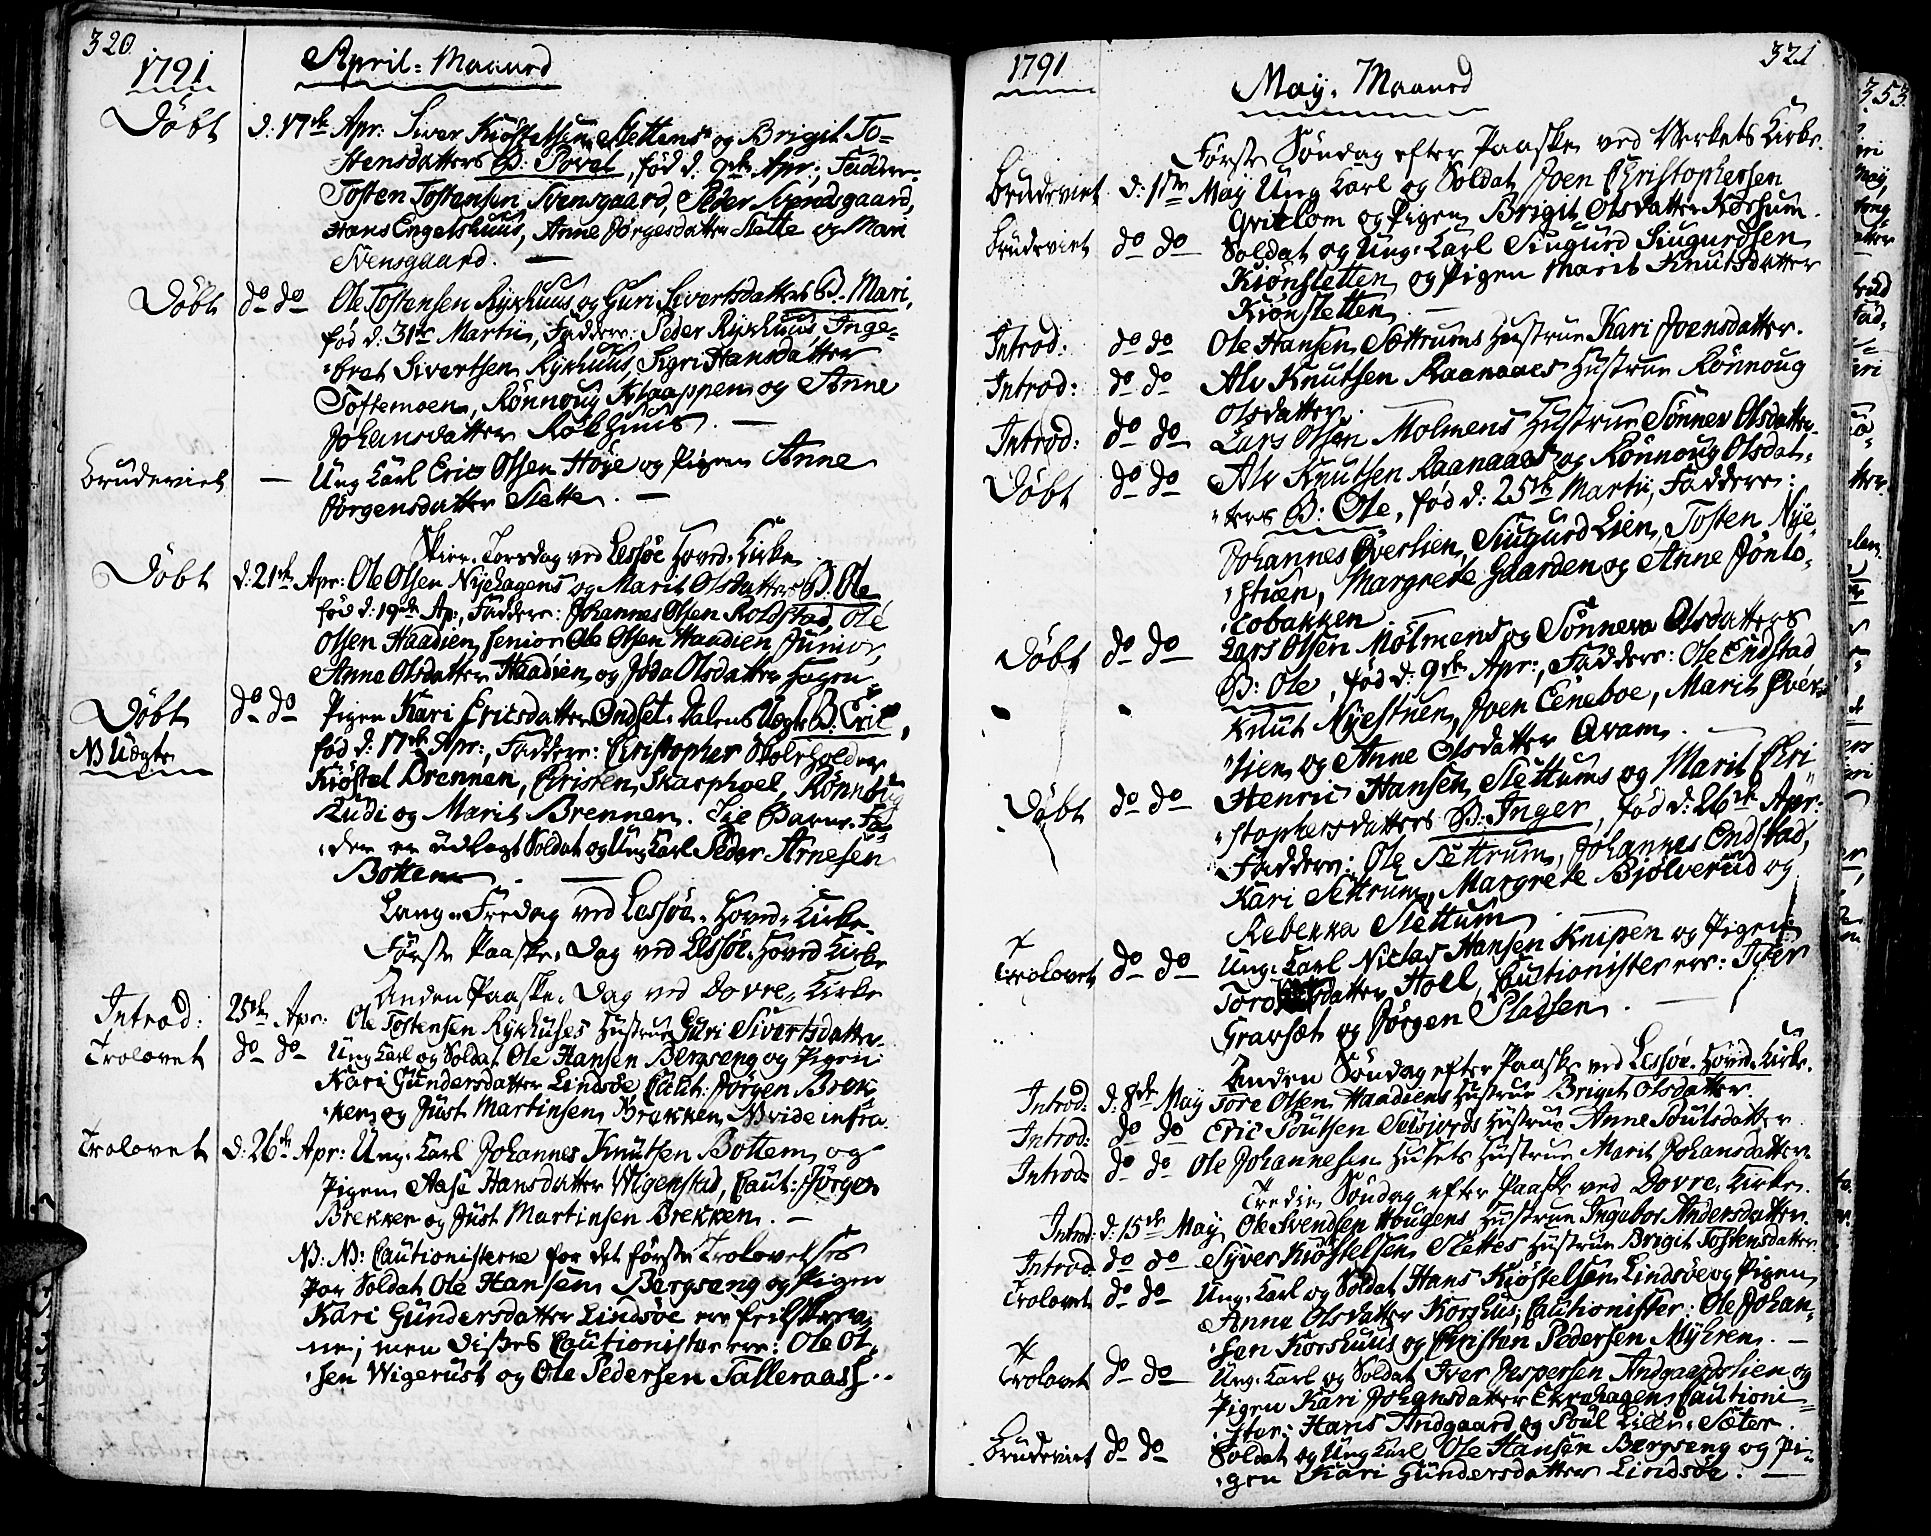 320
1791
April: Maaned
Döbt d: 17de Apr: Siver Kiöstelsen Slettens og Brigit To-
stensdatters B: Povel, fød d: 9de Apr:, Faddere:
Tosten Tostensen Svensgaard, Peder Svendsgaard,
Hans Engelshuus, Anne Jörgesdatter Slette og Mari
Svensgaard. —
Döbt do do Ole Tostensen Rykhuus og Guri Sivertsdatters B. Mari,
fød d: 31te Martii, Faddere: Peder Rykhuus, Inge-
bret Sivertsen Rykhuus, Sigri Hansdatter
Toftemoen, Rönnoug Klaappen og Anne
Johansdatter Rökhuus. —
Brudeviet — Ung Karl Eric Olsen Höye og Pigen Anne
Jörgensdatter Slette. —
Skier-Torsdag ved Lessöe Hoved-Kirke
Döbt d: 21de Apr: Ole Olsen Nyehagens og Marit Olsdatters B. Ole
fød d: 19de Ap:, Faddere: Johannes Olsen Roldstad, Ole
Olsen Haadien senior Ole Olsen Haadien Junior,
Anne Olsdatter Haadien og Joda Olsdatter Hagen
Döbt do do Pigen Kari Ericsdatter Endset-Dalens Uægte B. Eric,
NB Uægte fød d: 17de Apr:, Faddere: Christopher Skoleholder
Kiöstel Brennen, Christen Skarphoel, Rönnoug
Rudi og Marit Brennen. Til Barne-Fa-
der er udlagt Soldat og Ung Karl Peder Arnesen
Bottem. —
Lang-Fredag ved Lessöe-Hoved-Kirke
Første Paaske-Dag ved Lessöe-Hoved Kirke
Anden Paaske-Dag ved Dovre-Kirke
Introd: 25de Apr: Ole Tostensen Rykhuses Hustrue Guri Sivertsdatter
Trolovet do do Ung Karl og Soldat Ole Hansen Bergseng og Pigen
Kari Gundersdatter Lindsöe, Caut: Jörgen Brek-
ken og Just Martinsen Brekken, NB vide infra
Trolovet d: 26de Apr: Ung-Karl Johannes Knutsen Bottem og
Pigen Aase Hansdatter Wigenstad, Caut: Jörgen
Brekken og Just Martinsen Brekken. —
N: B: Cautionisterne for det förste Trolovelses
Par Soldat Ole Hansen Bergseng og Pigen
Kari Gundersdatter Lindsöe ere feilskrev-
ne; men disses Cautionister ere: Ole Ol-
sen Wigerust og Ole Pedersen Talleraass.
1791
321
May-Maaned
Første Söndag efter Paaske ved Verkets Kirke.
Brudeviet d: 1ste May Ung Karl og Soldat Joen Christophersen
Qvitlom og Pigen Brigit Olsdatter Korsum.
Brudeviet do do Soldat og Ung-Karl Siugurd Siugurdsen
Kiönsletten og Pigen Marit Knutsdatter
Kiönsletten —
Introd: do do Ole Hansen Settrums Hustrue Kari Joensdatter.
Introd: do do Alv Knutsen Raanaaes Hustrue Rönnoug
Olsdatter.
Introd: do do Lars Olsen Molmens Hustrue Sönnev Olsdatter.
Döbt do do Alv Knutsen Raanaaes og Rönnoug Olsdat-
ters B: Ole, fød d: 25de Martii, Faddere:
Johannes Överlien, Siugurd Lien, Tosten Nye-
stuen, Margrete Gaarden og Anne Jönlo-
cobakken
Döbt do do Lars Olsen Mölmens og Sönneva Olsdatters
B: Ole, fød d: 9de Apr:, Faddere: Ole Endstad
Knut Nyestuen, Joen Eneboe, Marit Över-
lien og Anne Olsdatter Qvam. —
Döbt do do Henric Hansen Slettums og Marit Chri-
stophersdatters B: Inger, fød d: 26de Apr:
Faddere: Ole Settrum, Johannes Endstad,
Kari Settrum, Margrete Bjölverud og
Rebekka Slettum.
Trolovet do do Ung-Karl Niclas Hansen Knipen og Pigen
datter Holl, Cautionister ere: Iver
Gravset og Jörgen Pladsen. —
Anden Söndag efter Paaske ved Lessöe-Hoved-Kirke.
Introd: d: 8de May Tore Olsen Haadiens Hustrue Brigit Olsdatter.
Introd: do do Eric Poulsen Selsjords Hustrue Anne Poulsdatter.
Introd: do do Ole Johannesen Husets Hustrue Marit Johansdatter
Tredie Söndag efter Paaske ved Dovre-Kirke.
Introd: d: 15de May Ole Svendsen Hougens Hustrue Ingebor Andersdatter.
Introd do do Syver Kiöstelsen Slettes Hustrue Brigit Tostensdatter
Trolovet do do Ung-Karl og Soldat Hans Kiöstelsen Lindsöe og Pigen
Anne Olsdatter Korshus, Cautionister: Ole Johan-
sen Korshuus og Christen Pedersen Myhren. —
Trolovet do do Ung-Karl og Soldat Iver Jespersen Andgaardslien og
Pigen Kari Johansdatter Ekrehagen, Cautioni-
ster: Hans Andgaard og Poul Lille-Sæter.
Brudeviet do do Soldat og Ung Karl Ole Hansen Bergseng og Pi-
gen Kari Gundersdatter Lindsöe. —
353